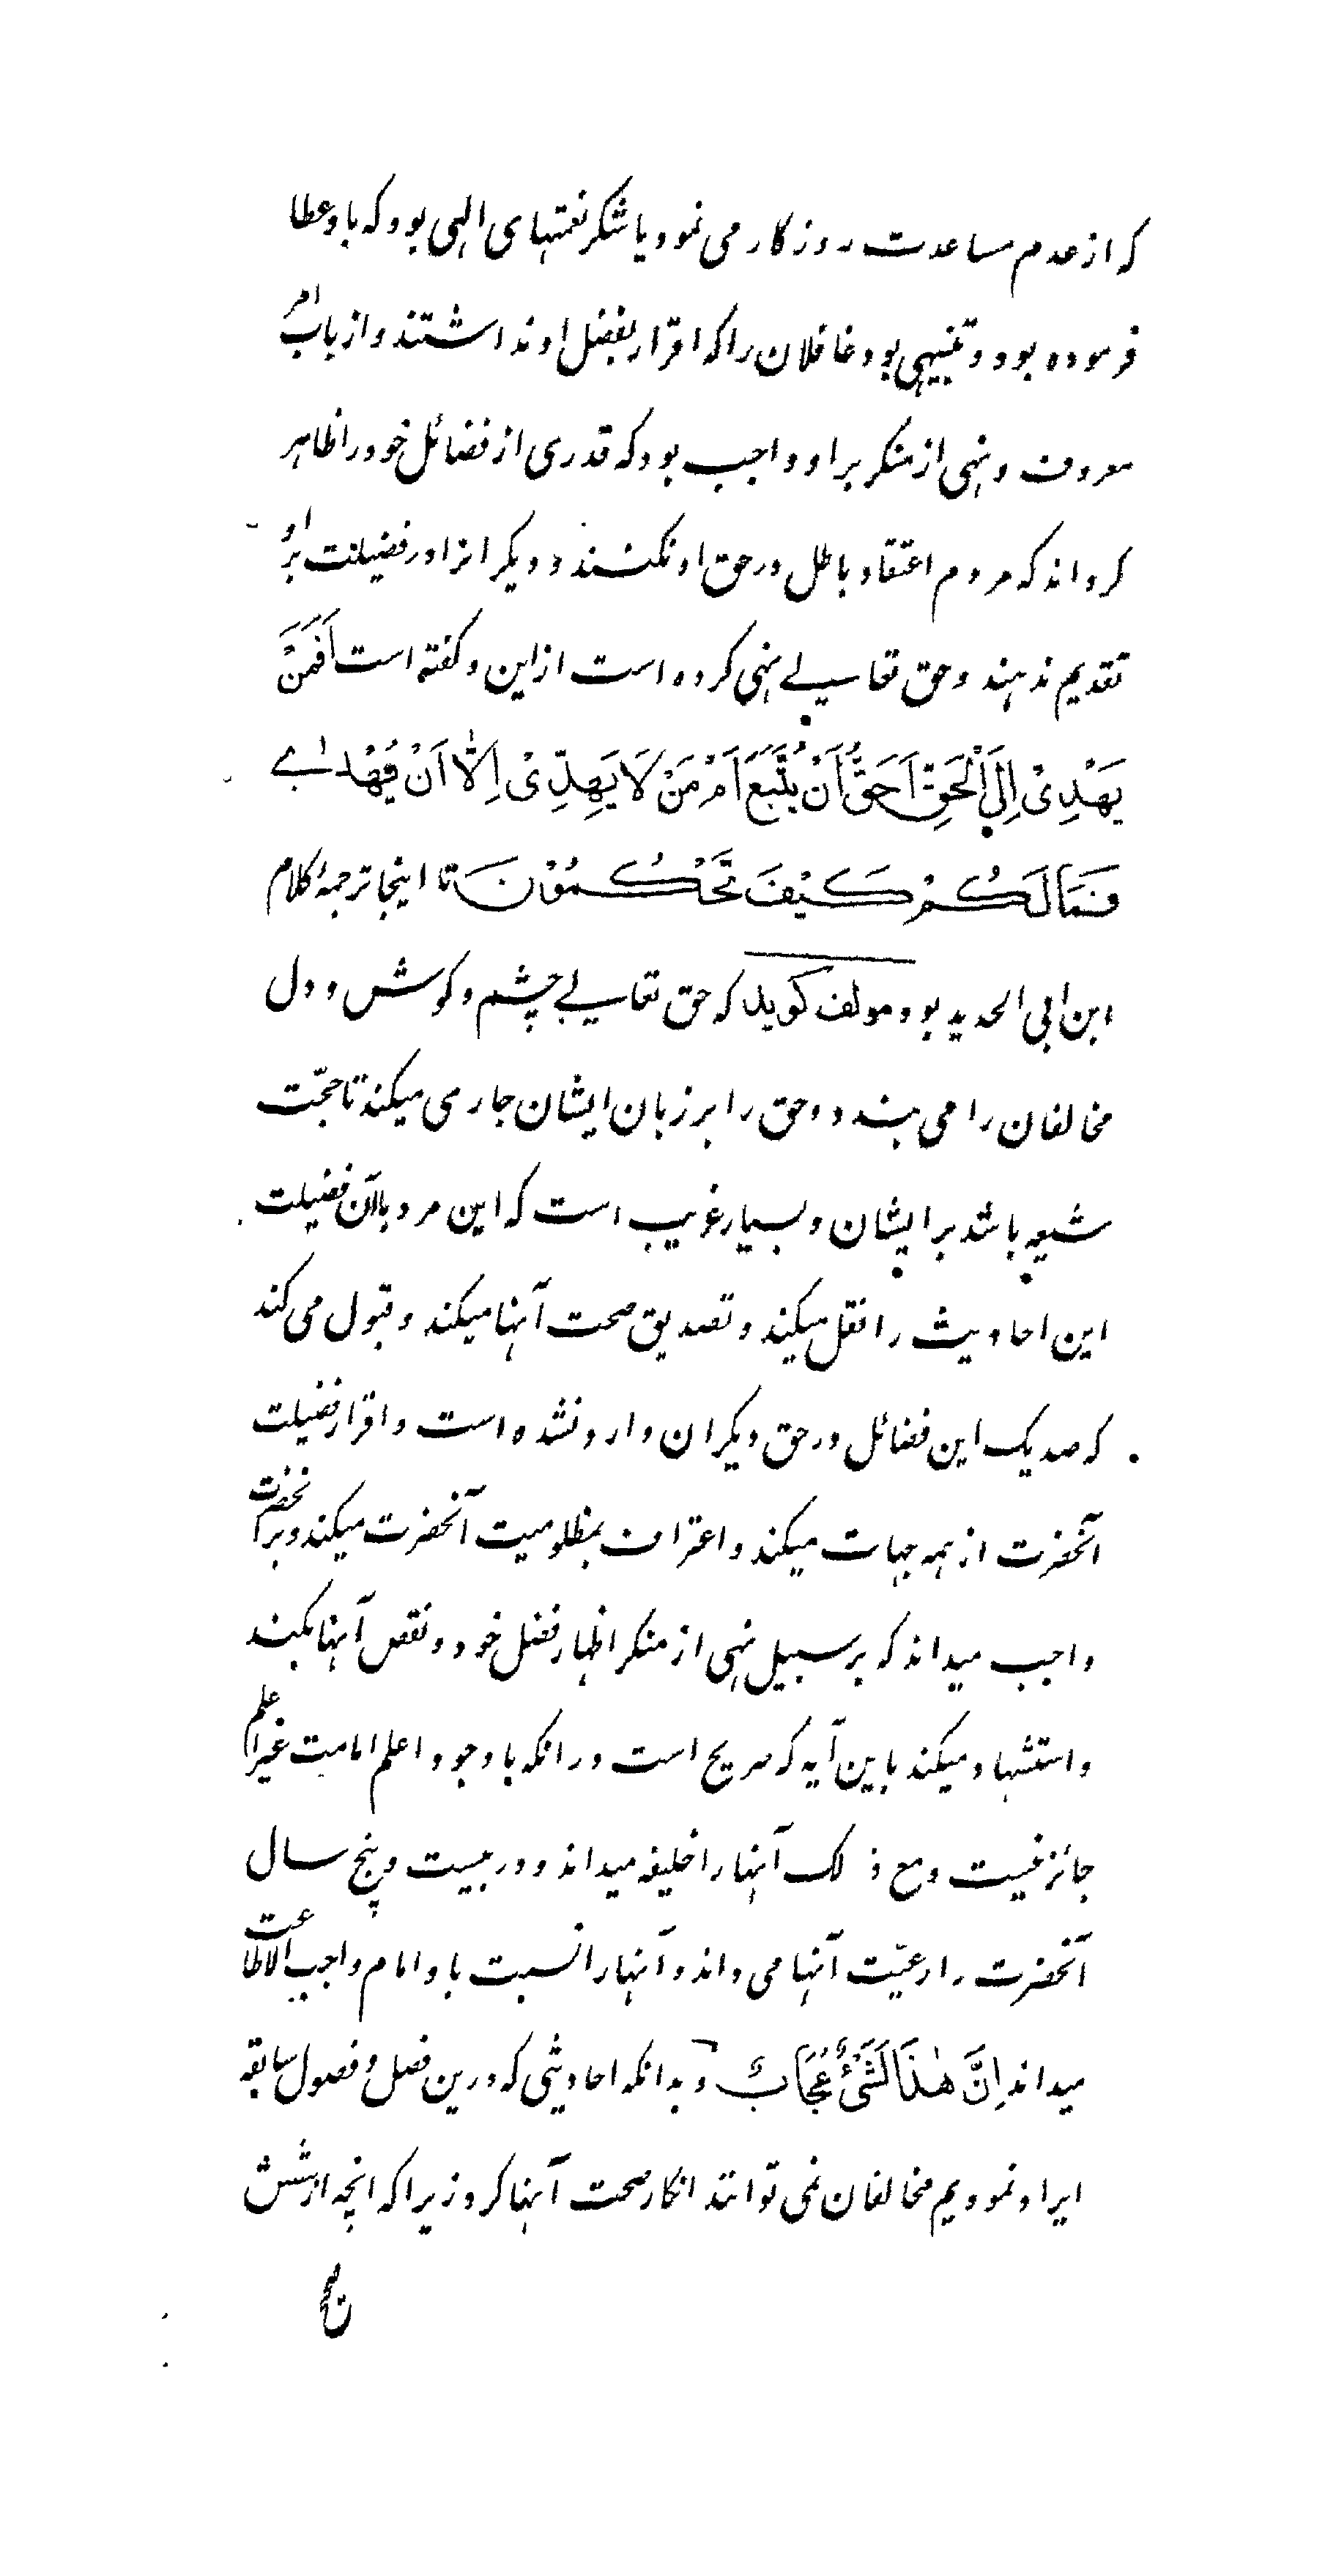 که از عدم مساعدت روزگار می نمود یا شکر نعمتهای الهی بود که باو عطا
فرموده بود و تنبیهی بود غافلان را که اقرار بفضل او نداشتند و از باب امر
معروف و نهی از منکر بر او واجب بود که قدری از فضائل خود را ظاهر
کرداند که مردم اعتقاد باطل در حق او نکنند و دیگرانرا در فضیلت بر او
تقدیم ندهند و حق تعالی نهی کرده است از این و کفته است اَفَمَنْ
یَهْدِیْ اِلَی الْحَقِّ اَحَقُّ اَنْ یُتَّبَعَ اَمْ مَنْ لَا یَهِدِّیْ اِلَّا اَنْ یُهْدٰی
فَمَا لَکُمْ کَیْفَ تَحْکُمُوْنَ تا اینجا ترجمهٔ کلام
ابن ابی الحدید بود مولف کوید که حق تعالی چشم و کوش و دل
مخالفان را می بندد و حق را بر زبان ایشان جاری میکند تا حجّت
شیعه باشد بر ایشان و بسیار غریب است که این مرد باآن فضیلت
این احادیث را نقل میکند و تصدیق صحت آنها میکند و قبول می کند
که صد یک این فضائل در حق دیکران وارد نشده است و اقرار فضیلت
آنحضرت از همه جهات میکند و اعتراف بمظلومیت آنحضرت میکند و بر آنحضرت
واجب میداند که بر سبیل نهی از منکر اظهار فضل خود و نقص آنها بکند
و استشهاد میکند باین آیه که صریح است در انکه با وجود اعلم امامت غیر اعلم
جائز نیست و مع ذلک آنها را خلیفه میداند و در بیست و پنج سال
آنحضرت را رعیّت آنها می داند و آنها را نسبت باو امام واجب الاطاعت
میداند اِنَّ هٰذَا لَشَیْءٌ عُجَابٌ و بدانکه احادیثی که درین فصل و فصول سابقه
ایراد نمودیم مخالفان نمی توانند انکار صحت آنها کرد زیرا که انچه از شش